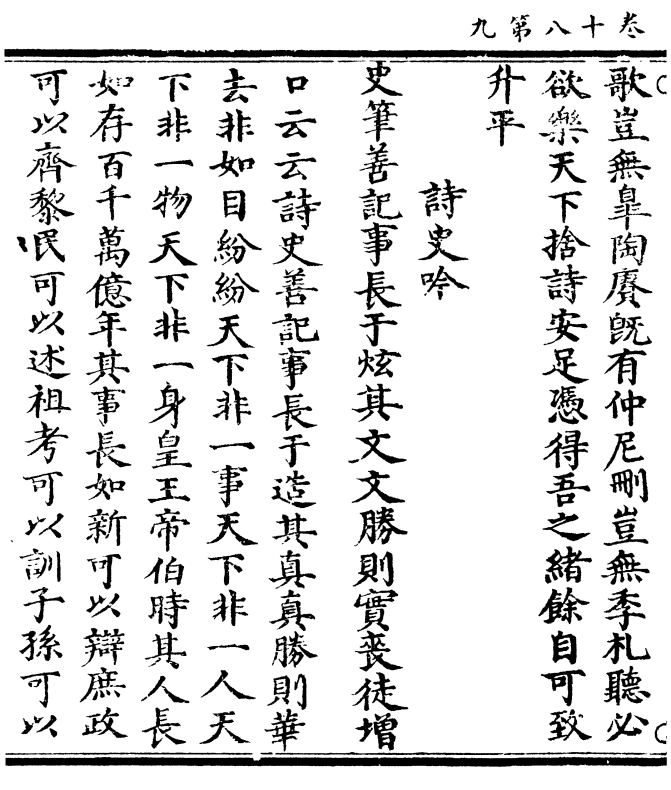 卷十八第九
歌豈無臯陶賡既有仲尼刪豈無季札聽必
欲樂天下捨詩安足憑得吾之緒餘自可致
升平
詩史吟
史筆善記事長于炫其文文勝則實喪徒增
口云云詩史善記事長于造其真真勝則華
去非如目紛紛天下非一事天下非一人天
下非一物天下非一身皇王帝伯時其人長
如存百千萬億年其事長如新可以辯庶政
可以齊黎民可以述祖考可以訓子孫可以